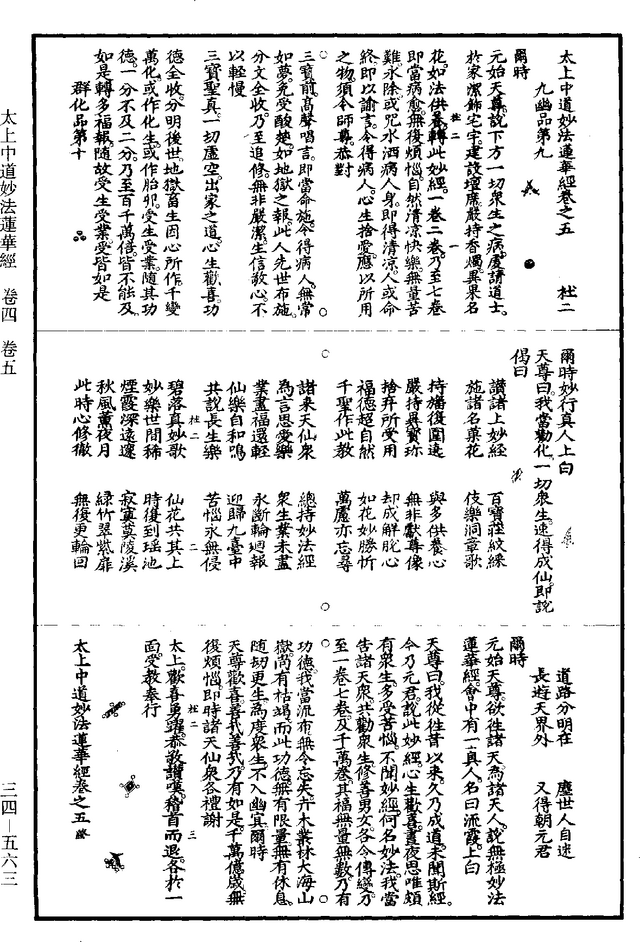 太上中道妙法蓮華經卷之五　杜二
九幽品第九
爾時
元始天尊說下方一切衆生之病處請道士
於家潔飾宅宇建設壇席嚴持香燭異果名
花如法供養轉此妙經一卷二卷乃至七卷
即當病愈無復煩惱自然清凉快樂無量苦
難永除或咒水洒病人身即得清凉人或命
終即以諭言令得病人心生捨愛應以所用
之物須令師尊恭對
三寶前高聲唱言即當命施令得病人無常
如夢免受酸楚如地獄之報此人先世布施
分文全收乃至追修無非嚴潔生信敬心不
以輕慢
三寶聖真一切虛空出家之道心生歡喜功
德全收分明後世地獄畜生因心所作千變
萬化或作化生或作胎卵受生受業隨其功
德一分不及二分乃至百千萬倍皆不能及
如是轉多福報隨故受生受業受皆如是
群化品第十
爾時妙行真人上白
天尊曰我當勸化一切衆生速得成仙即說
偈曰
讚諸上妙經　百寶莊紋綵
施諸名菓花　伎樂洞章歌
持旛復圍遶　與多供養心
嚴持異寶珎　無非獻尊像
捨弃所受用　却成解脫心
福德超自然　如花妙勝忻
千聖作此教　萬慮亦忘尋
諸来天仙衆　總持妙法經
為言思愛樂　衆生業未盡
業盡福還輕　永斷輪迴報
仙樂自和鳴　迎歸九臺中
共說長生樂　苦惱永無侵
碧落真妙歌　仙花共其上
妙樂世間稀　時復到瑶池
煙霞深遠邃　寂寞莫陵溪
秋風薰夜月　緑竹翠紫扉
此時心修徹　無復更輪回
道路分明在　塵世人自迷
長遊天界外　又得朝元君
爾時
元始天尊欲往諸天為諸天人說無極妙法
蓮華經會中有一真人名曰流霞上白
天尊曰我從往昔以来久乃成道未聞斯經
令乃元君說此妙經心生歡喜晝夜思唯頗
有衆生多受苦惱不聞妙經何名妙法我當
告諸天衆共勸衆生修善男女各令傳燮乃
至一卷七卷及千萬卷其福無量無數乃有
功德我當流布無令忘失卉木叢林大海山
獄尚有枯竭而此功德無有限量無有休息
随劫更生為度衆生不入幽冥爾時
天尊歡喜善我善我乃有如是千萬億歲無
復煩惱即時諸天仙衆各禮謝
太上歡喜勇躍恭敬讚嘆稽首而退各於一
面受教奉行
太上中道妙法蓮華經卷之五終
太上中道妙法蓮華經　卷四　卷五
三四—五六三